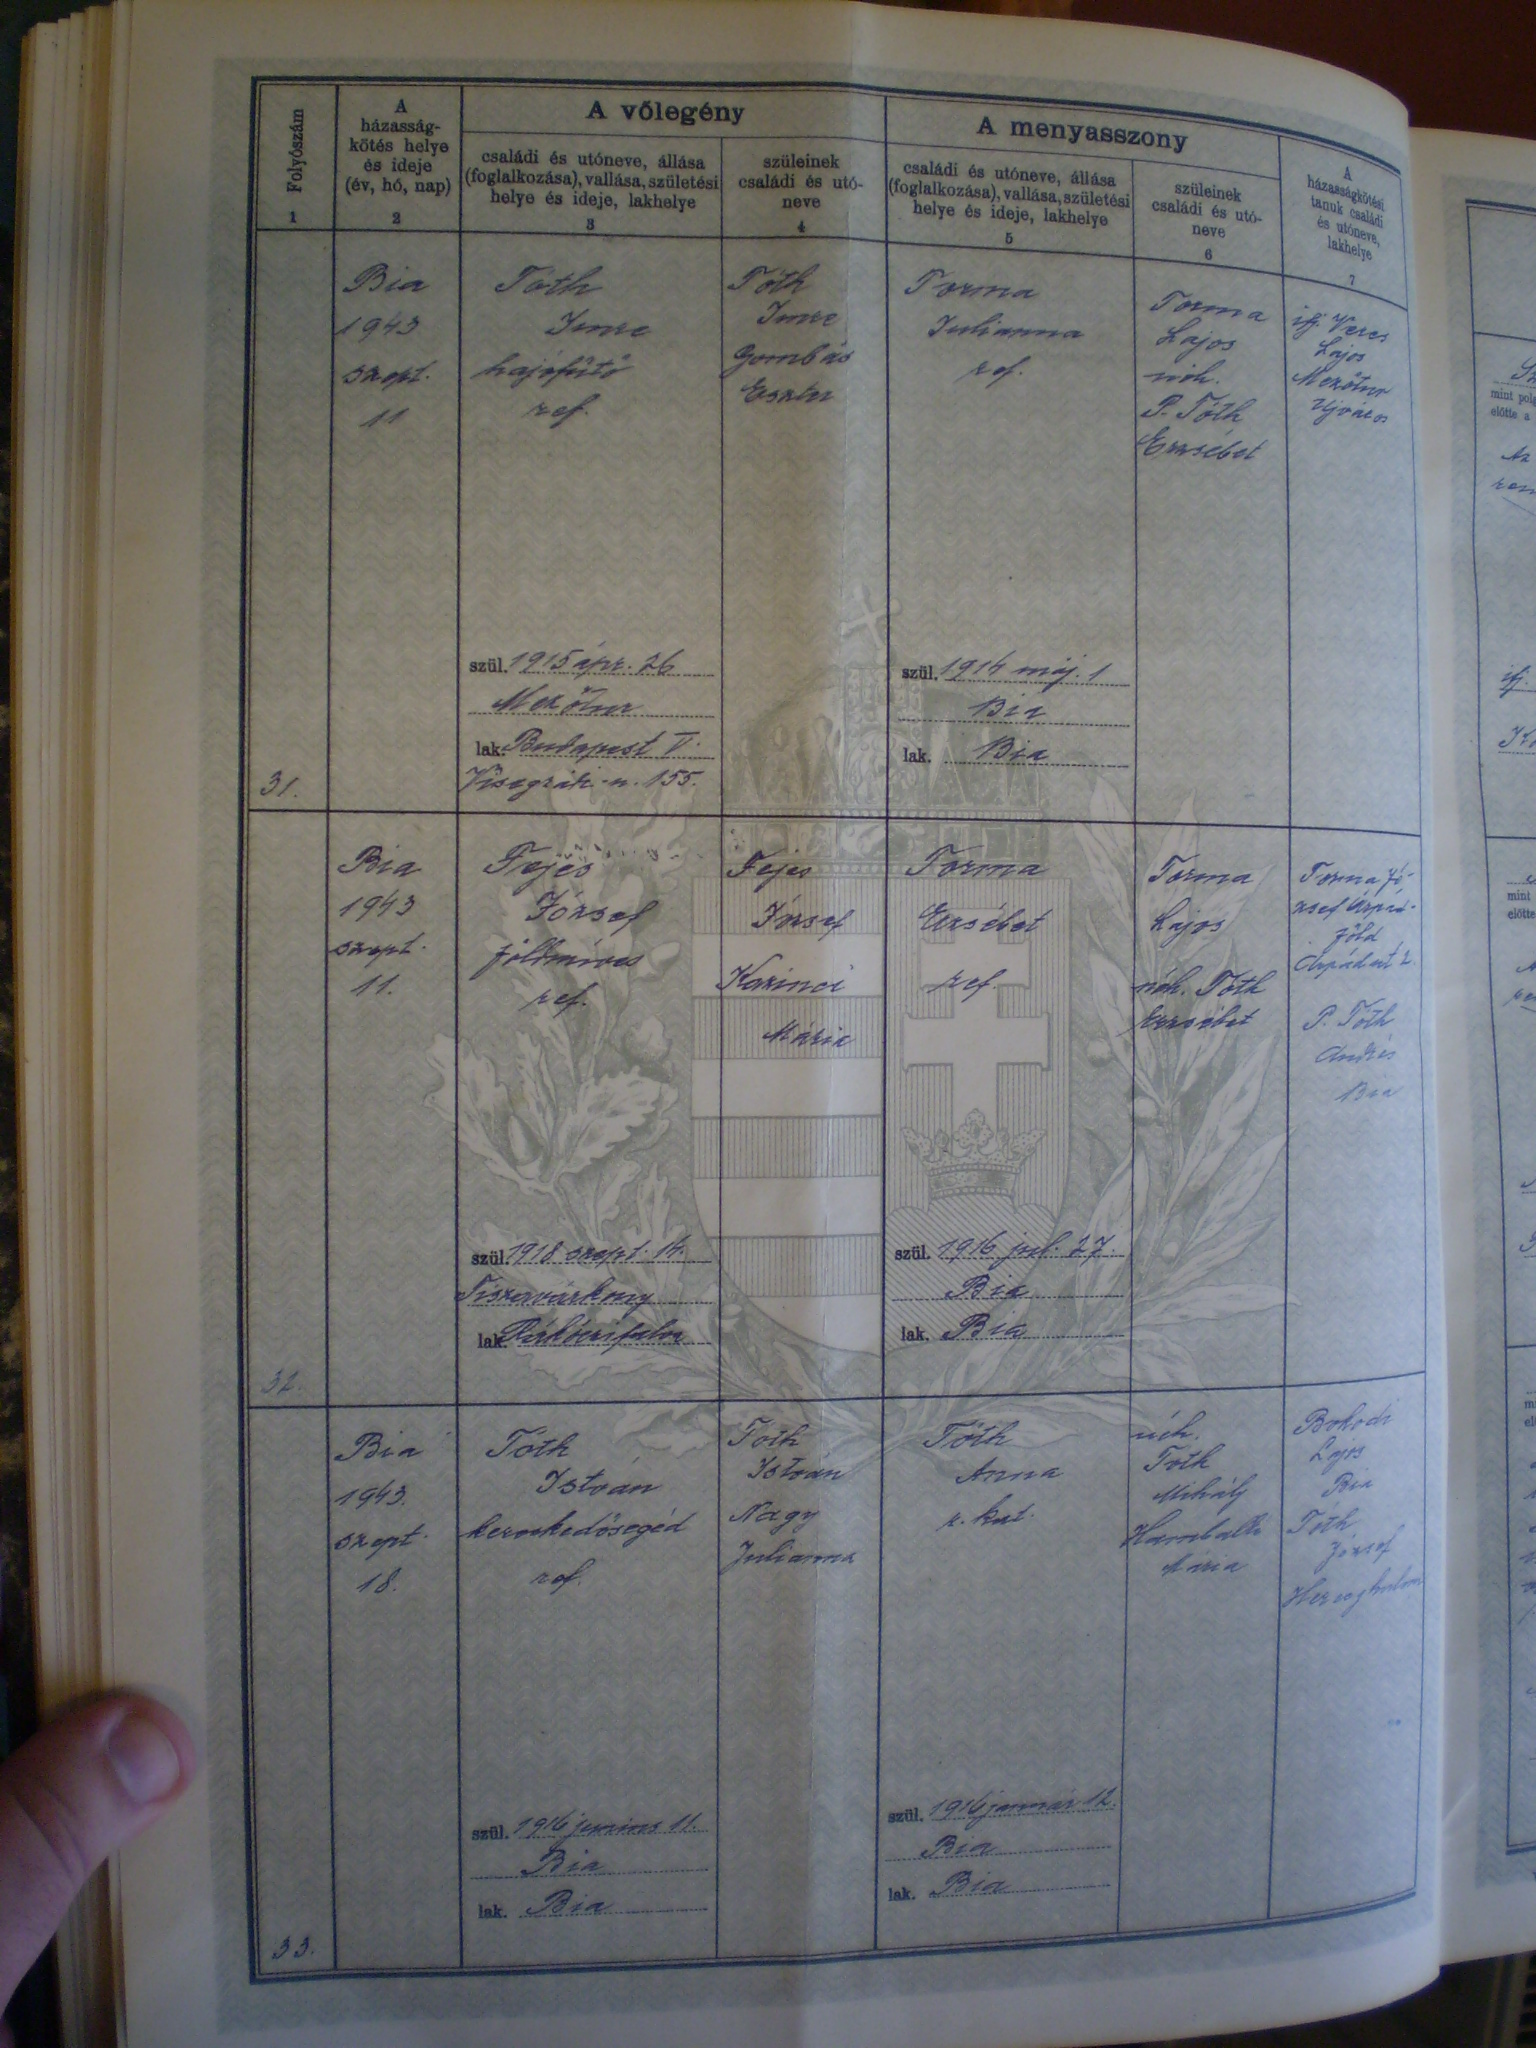 Folyószám
1
A
házasság-
kötés helye
és ideje
(év, hó, nap)
2
A vőlegény
családi és utóneve, állása
(foglalkozása), vallása, születési
helye és ideje, lakhelye
3
szüleinek
családi és utó-
neve
4
A menyasszony
családi és utóneve, állása
(foglalkozása), vallása, születési
helye és ideje, lakhelye
5
szüleinek
családi és utó-
neve
6
A
házasságkötési
tanuk családi
és utóneve,
lakhelye
7
31.
Bia
1943
szept.
11
Tóth
Imre
hajófűtő
ref.
szül. 1915 ápr. 26
Mezőtur
lak. Budapest V.
Visegrádi-u. 155.
Tóth
Imre
Gombás
Eszter
Torma
Julianna
ref.
szül. 1914 máj. 1
Bia
lak. Bia
Torma
Lajos
néh.
P. Tóth
Erzsébet
ifj. Veres
Lajos
Mezőtur
Ujváros
32.
Bia
1943
szept.
11.
Fejes
József
földmíves
ref.
szül. 1918 szept. 14.
Tiszavárkony
lak. Rákóczifalva
Fejes
József
Karinci
Mária
Torma
Erzsébet
ref.
szül. 1916 jul. 27.
Bia
lak. Bia
Torma
Lajos
néh. Tóth
Erzsébet
Torma Jó-
zsef Árpád-
föld
Árpád ut 2.
P. Tóth
András
Bia
33.
Bia
1943.
szept.
18.
Tóth
István
kereskedősegéd
ref.
szül. 1916 junius 11.
Bia
lak. Bia
Tóth
István
Nagy
Julianna
Tóth
Anna
r. kat.
szül. 1916 január 12.
Bia
lak. Bia
néh.
Tóth
Mihály
Mária
Bokodi
Lajos
Bia
Tóth
József
Herceghalom